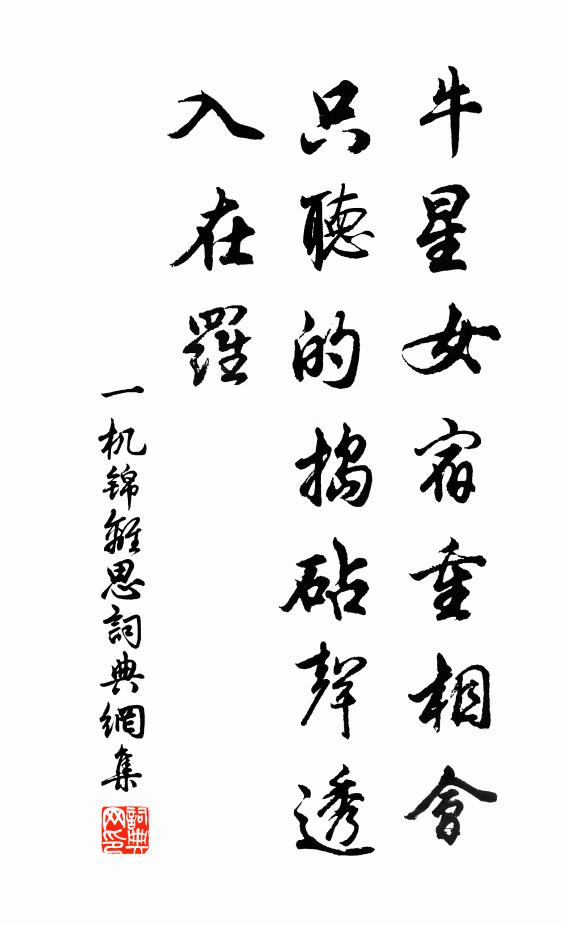 牛星女宿重相會
只聽的搗砧聲透
入在羅
一机锦離思詞典網集
詞典
网印